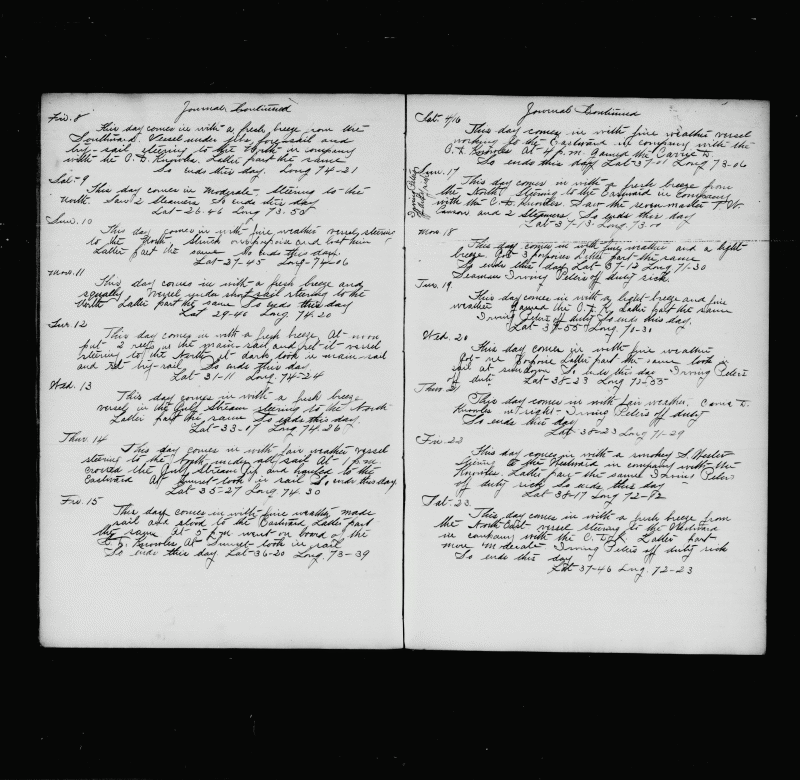 Journal Continued
Fri. 8
This day comes in with a fresh breeze from the
Southward. Vessel under fore-sail and
try-sail steering to the North in company
with the C. D. Knowles. Latter part the same
So ends this day. Long 74-21
Sat-9
This day comes in moderate. Steering to the
north. Saw 2 steamers So ends this day
Lat-26.46 Long 73.50
Sun. 10
This day comes in with fine weather vessel steering
to the North Struck and lost him
Latter part the same So ends this day.
Lat-27-45 Long-74-06
Mon. 11
This day comes in with a fresh breeze and
squally Vessel under short sail steering to the
North Latter part the same So ends this day
Lat 29-46 Long 74.20
Tues 12
This day comes in with a fresh breeze At noon
put 2 reefs in the main-sail and set it vessel
steering to the North at dark took in main-sail
and set try-sail. So ends this day
Lat 31-11 Long 74-24
Wed. 13
This day comes in with a fresh breeze
vessel in the Gulf Stream steering to the North
Latter part the same So ends this day.
Lat-33-01 Long 74.26
Thur. 14
This day comes in with fair weather vessel
steering to the North under all sail At 1 p.m.
crossed the Gulf Stream and hauled to the
Eastward At sunset took in sail So ends this day
Lat 35-27 Long 74.30
Fri. 15
This day comes in with fine weather made
sail and stood to the Eastward Latter part
the same At 5 p.m. went on board of the
C. D. Knowles At sunset took in sail
So ends this day Lat-36-20 Long. 73-39
Journal Continued
Sat. 16
This day comes in with fine weather vessel
working to the Eastward in company with the
C. D. Knowles At 4 p.m. gamed the Carrie D.
So ends this day Lat-37-01 Long 73-06
Sun. 17
Irving Peters
This day comes in with a fresh breeze from
the North Steering to the Eastward in Company
with the C. D. Knowles. Saw the seven master T. W.
Lawson and 2 Steamers. So ends this day
Lat-37-13 Long 73.00
Mon 18
This day comes in with fine weather and a light
breeze Got 3 porpoises Latter part the same
So ends this day Lat-37-12 Long 71.30
Seaman Irving Peters off duty sick.
Tues. 19.
This day comes in with a light breeze and fine
weather Gamed the C. D. K. Latter part the same
Irving Peters off duty So ends this day.
Lat-37-55 Long 70-31
Wed. 20
This day comes in with fine weather
Got one Porpoise Latter part the same took in
sail at sundown So ends this day Irving Peters
off duty Lat-38-23 Long 70-55
Thurs 21
This day comes in with fair weather. Carrie D.
Knowles in sight-Irving Peters off duty
So ends this day
Lat 38-23 Long 71-29
Fri-22
This day comes in with a smokey S. Wester
Steering to the Westward in company with the
Knowles Latter part the same Irving Peters
off duty sick So ends this day
Lat-38-17 Long 72-82
Sat-23.
This day comes in with a fresh breeze from
the North East vessel steering to the Westward
in company with the C. D. K. Latter part
more moderate Irving Peters off duty sick
So ends this day
Lat 37-46 Long. 72-23